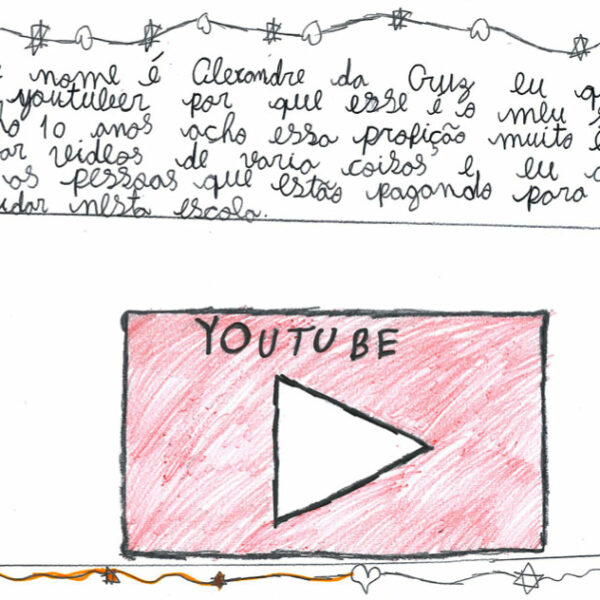 nome é Alexandre da Cruz eu q
youtuber por que esse é o meu s
10 anos acho essa profição muito
videos de varia coisas e eu
as pessoas que estão pagando para
udar nesta escola.
YOUTUBE